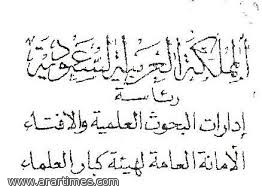 المملكة العربية السعودية
رئاسة
إدارات البحوث العلمية والافتاء
الامانة العامة لهيئة كبار العلماء
www.arartimes.com